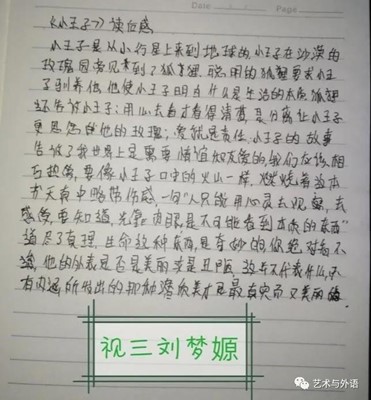 Date Page
《小王子》读后感
小王子是从小行星上来到地球的,小王子在沙漠的
玫瑰园旁见到了狐狸,聪明的狐狸要求小王
子驯养他,他使小王子明白什么是生活的本质,狐狸
还告诉小王子:用心去看才看得清楚,是分离让小王子
更思念他的玫瑰;爱就是责任.小王子的故事
告诉了我世界上是需要情谊和友爱的,我们应该相
互热爱,要像小王子口中的火山一样,燃烧着.这本
书天真中略带伤感,一句"人只能用心灵去观察,去
感觉,要知道,光靠肉眼是不可能看到本质的东西"
道尽了真理.生命这种东西,是奇妙的你绝对看不
透,他的外表是否是美丽或是丑陋,这并不代表什么,只
有内涵所释出的那种潜质美才是最真实而又美丽的.
视三刘梦嫄
艺术与外语